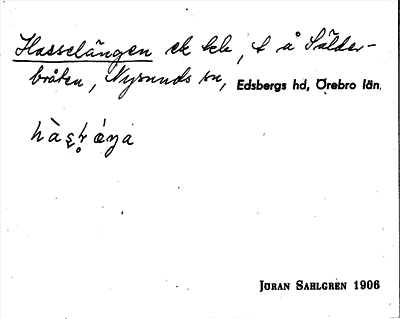 Hasselängen ek kle, t å Sälder-
bråten, Nysunds sn, Edsbergs hd, Örebro län.
JÖRAN SAHLGREN 1906